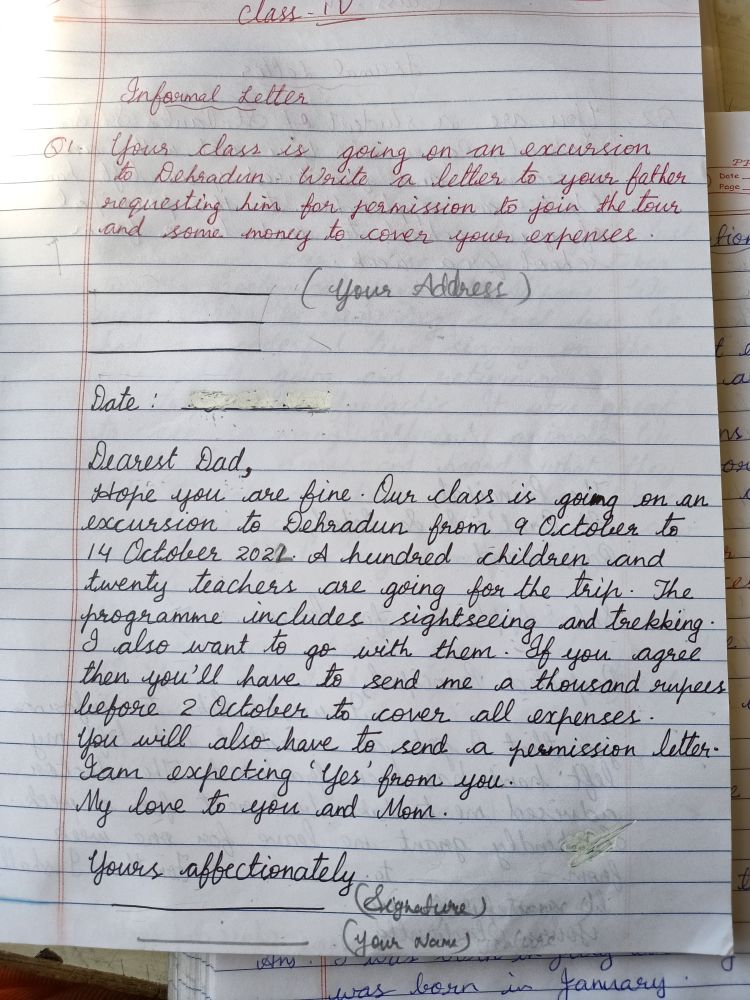 Class - IV
Informal Letter
Q1. Your class is going on an excursion
to Dehradun. Write a letter to your father
requesting him for permission to join the tour
and some money to cover your expenses.
(Your Address)
Date :
Dearest Dad,
Hope you are fine. Our class is going on an
excursion to Dehradun from 9 October to
14 October 2022. A hundred children and
twenty teachers are going for the trip. The
programme includes sightseeing and trekking.
I also want to go with them. If you agree
then you'll have to send me a thousand rupees
before 2 October to cover all expenses.
You will also have to send a permission letter.
I am expecting 'Yes' from you.
My love to you and Mom.
Yours affectionately
(Signature)
(Your Name)
Ans. I was born in
was born in January.
Date
Page